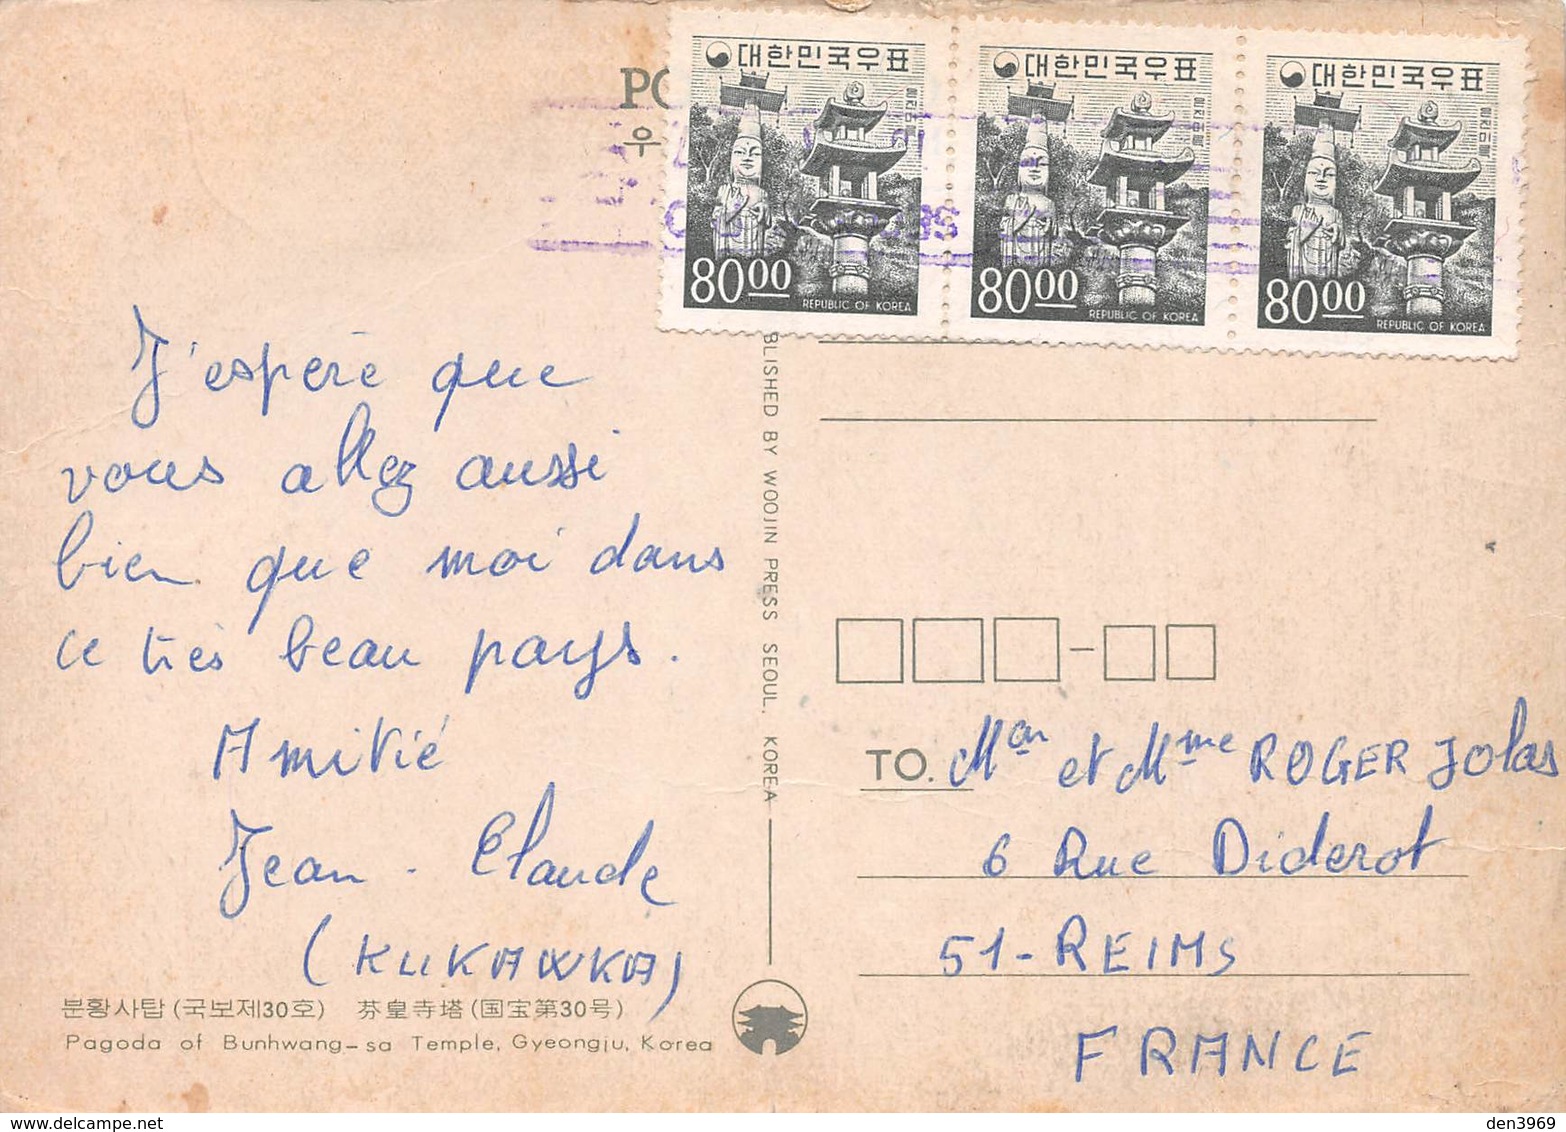 대한민국우표
8000
REPUBLIC OF KOREA
대한민국우표
8000
REPUBLIC OF KOREA
대한민국우표
8000
REPUBLIC OF KOREA
J'espère que
vous allez aussi
bien que moi dans
ce très beau pays.
Amitié
Jean-Claude
(KUKAWKA)
분황사탑 (국보제30호) 芬皇寺塔 (国宝第30号)
Pagoda of Bunhwang-sa Temple, Gyeongju, Korea
BLISHED BY WOOJIN PRESS SEOUL, KOREA
TO. Mon et Mme ROGER Jolas
6 Rue Diderot
51-REIMS
FRANCE
den3969